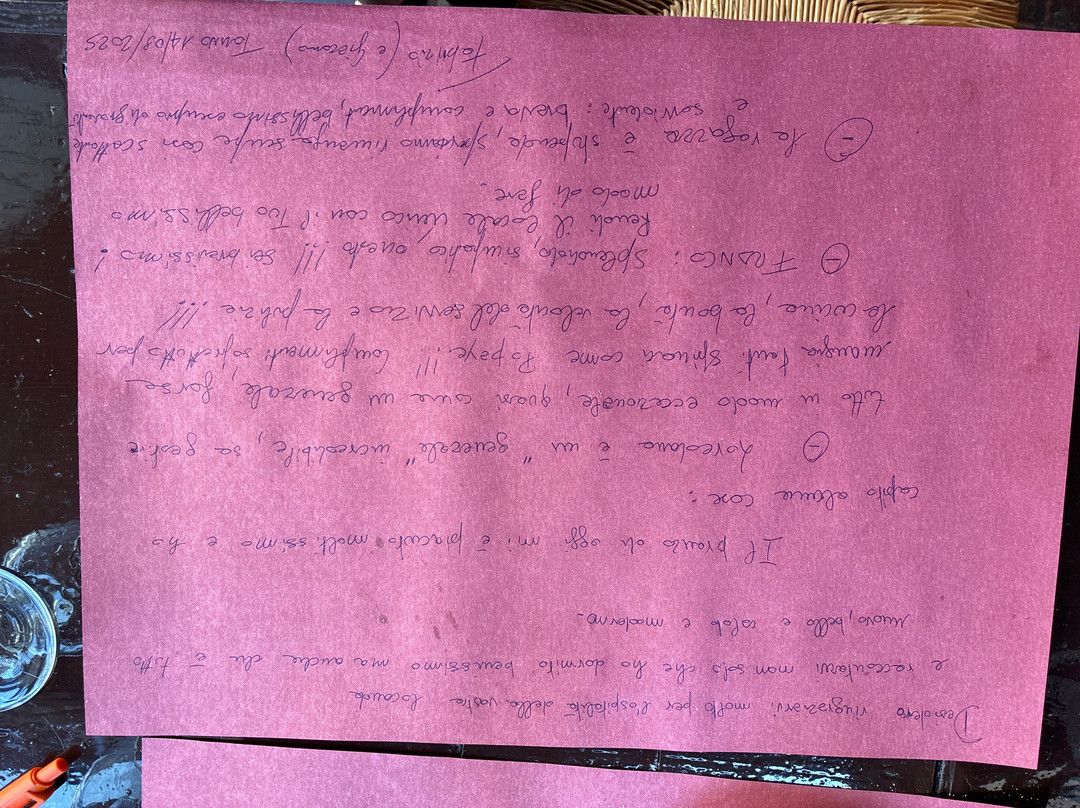 Desidero ringraziarvi molto per l'ospitalità della vostra locanda
e raccontarvi non solo che ho dormito benissimo ma anche che è tutto
nuovo, bello e caldo e moderno.
Il pranzo di oggi mi è piaciuto moltissimo e ho
capito alcune cose:
⊖ Loredana è un "generale" incredibile, sa gestire
tutto in modo eccezionale, quasi come un generale, forse
mangia tanti spinaci come Popeye!!! Complimenti soprattutto per
la cucina, la bontà, la velocità del servizio e la pulizia!!!
⊖ Franco: splendido, simpatico, onesto!!! Sei bravissimo!
Rendi il locale unico con il Tuo bellissimo
modo di fare.
⊖ la ragazza è stupenda, speriamo rimanga sempre così scattante
e sorridente: brava e complimenti, bellissimo esempio di gioventù
Fabrizio (e Giacomo) Torino 14/08/2025